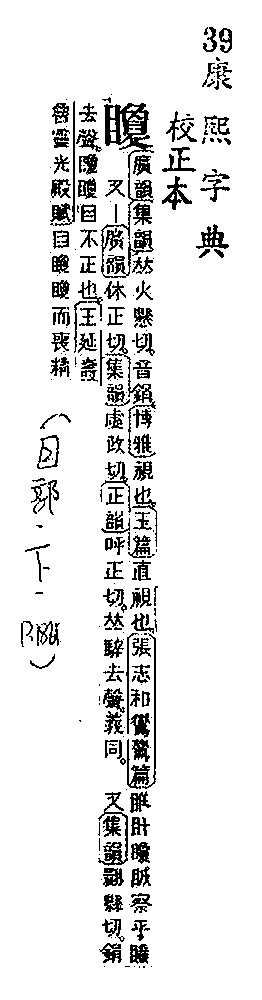 39康熙字典
校正本
矎
廣韻集韻𠀤火懸切。音鋗。博雅視也。玉篇直視也。張志和鸑鷟篇睢盱矎察乎矎
又｜廣韻休正切。集韻虛政切。正韻呼正切。𠀤騂去聲。義同。 又集韻翾縣切。鋗
去聲。矎矎目不正也。王延壽
魯靈光殿賦目矎矎而喪精
(目部·下·P.)